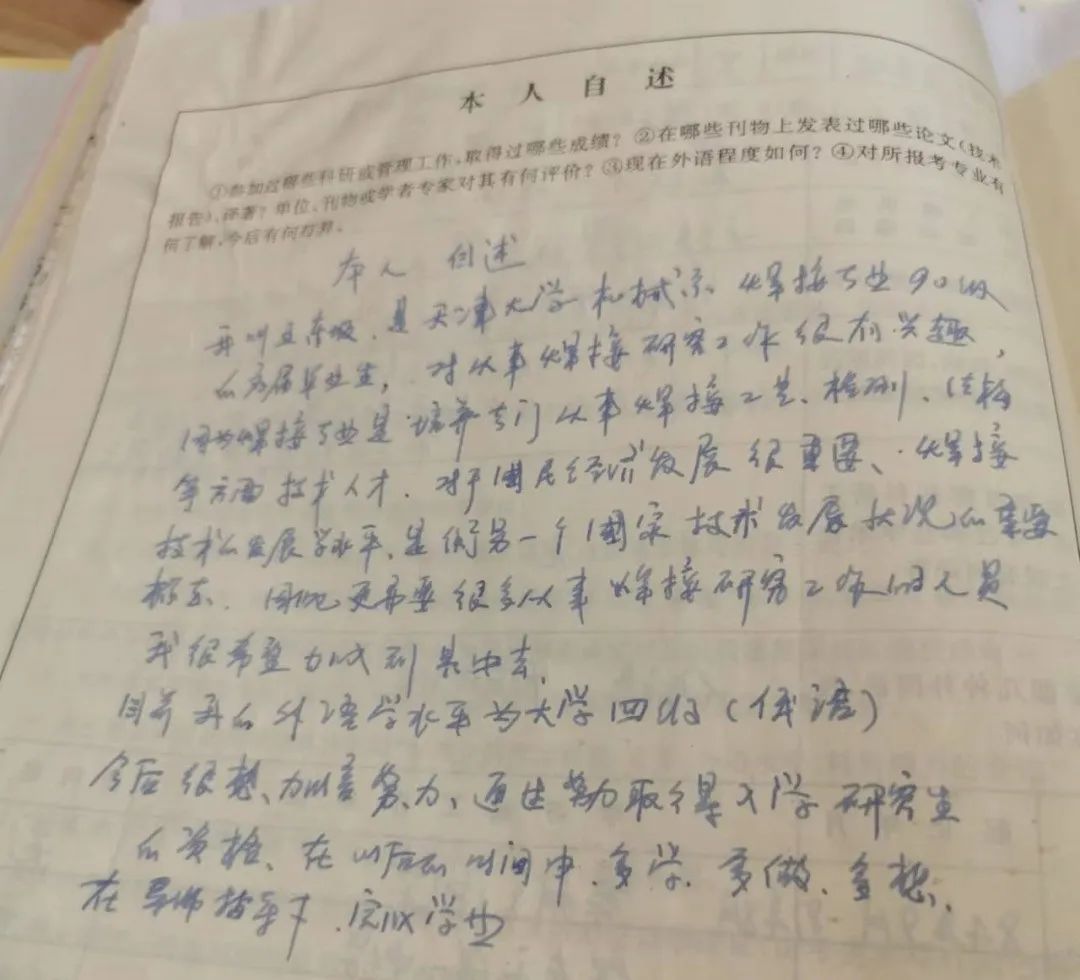 本人自述
①参加过哪些科研或管理工作,取得过哪些成绩?②在哪些刊物上发表过哪些论文(技术
报告)、译著?单位、刊物或学者专家对其有何评价?③现在外语程度如何?④对所报考专业有
何了解,今后有何打算。
本人 自述
我叫王东坡.是天津大学机械系 焊接专业90级
的应届毕业生,对从事焊接研究工作很有兴趣,
因为焊接专业是培养专门从事焊接工艺、检测、结构
等方面技术人才.对于国民经济发展很重要、焊接
技术的发展水平、是衡量一个国家技术发展状况的重要
标志.因此更需要很多从事焊接研究工作的人员
我很希望加入到其中去.
目前我的外语学水平为大学四级(俄语)
今后很想、加倍努力、通过努力取得入学研究生
的资格、在以后的时间中.多学.多做.多想.
在导师指导下.完成学业